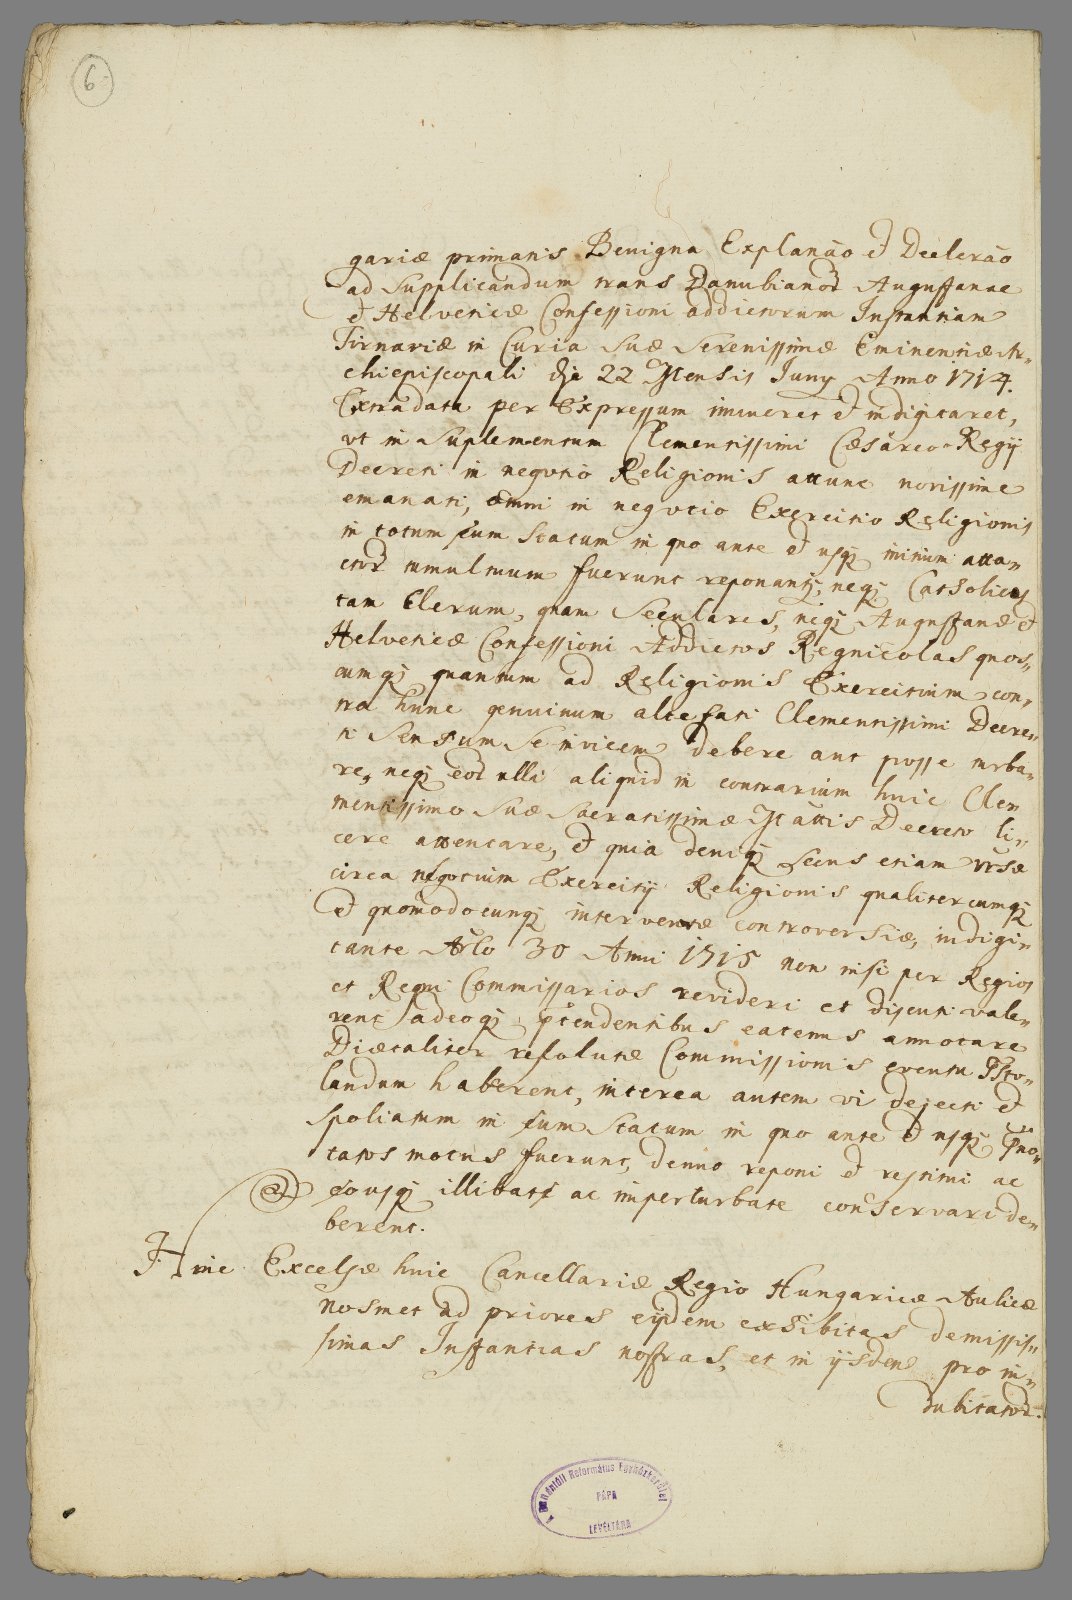 6
gariæ primatis Benigna Explanão et Declerão
ad Supplicandum trans Danubianor Augustanae
et Helveticæ Confessioni addictorum Instantiam
Tirnaviæ in Curia Suæ Serenissimæ Eminentiæ Ar„
chiepiscopali die 22 Mensis Juny Anno 1714.
Extradata per Expressum innueret et indigitaret,
ut in Suplementum Clementissimi Cæsareo-Regij
Decreti in negotio Religionis attunc novissime
emanati, omni in negotio Exercitio Religionis
in totum sum Statum in quo ante et usq initium atta„
ctor tumultuum fuerunt reponantr, neq Catholicos
tam Clerum, quam Seculares, neq Augustanæ et
Helveticæ Confessioni Addictos Regnicolas quos„
cumq quantum ad Religionis Exercitium con„
tra hunc genuinum altefati Clementissimi Decre„
ti Sensum Se invicem debere aut posse turba„
re, neq eor ulli aliquid in contrarium huic Cle„
mentissimo Suæ Sacratissimæ Mattis Decreto li„
cere attentare, et quia deniq Secus etiam ortæ
circa negotium Exercitij Religionis qualitercumq
et quomodocunq interventæ controversiæ, indigi„
tante Arlo 30 Anni 1715 non nisi per Regios
et Regni Commissarios revideri et discuti vale„
rent adeoq ptendentibus eatenus annotare
Diætaliter resolutæ Commissionis eventu Psto„
landum haberent, interea autem vi dejecti et
spoliatum in sum Statum in quo ante et usq pno„
tatos motus fuerunt, denuo reponi et restitui ac
eousq illibate ac imperturbate conservari de„
berent.
Hinc Excelsæ huic Cancellariæ Regio Hungaricæ Aulicæ
nosmet ad priores eijdem exhibitas demissis„
simas Instantias nostras, et in ijsdem pro in„
dubitator.
A Dunántúli Református Egyházkerület
PÁPA
LEVÉLTÁRA